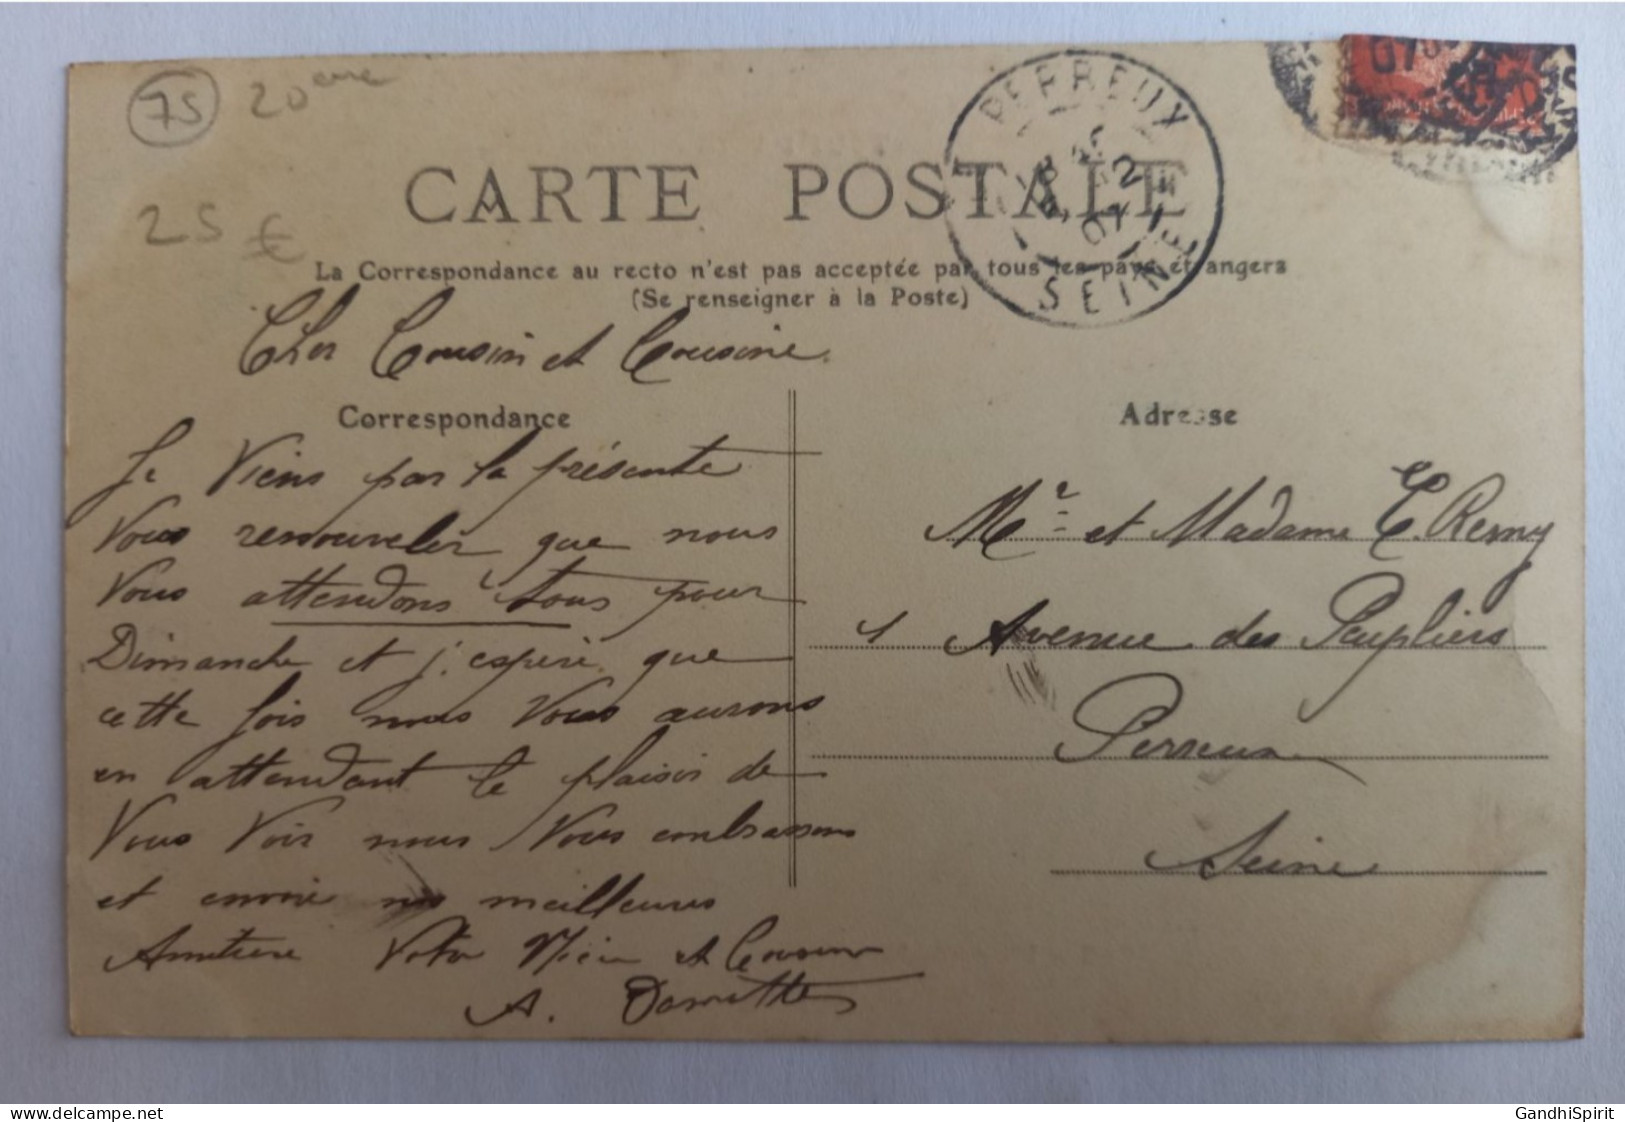 75
20ème
25 €
CARTE POSTALE
PERREUX
2
07
SEINE
La Correspondance au recto n'est pas acceptée par tous les pays étrangers
(Se renseigner à la Poste)
Cher Cousin et Cousine.
Correspondance
Je Viens par la présente
Vous renouveler que nous
Vous attendons tous pour
Dimanche et j'espère que
cette fois nous Vous aurons
en attendant le plaisir de
Vous Voir nous Vous embrassons
et envoie nos meilleures
Votre et Cousin
A.
Adresse
Mr et Madame E. Remy
1 Avenue des Peupliers
Perreux
Seine
GandhiSpirit